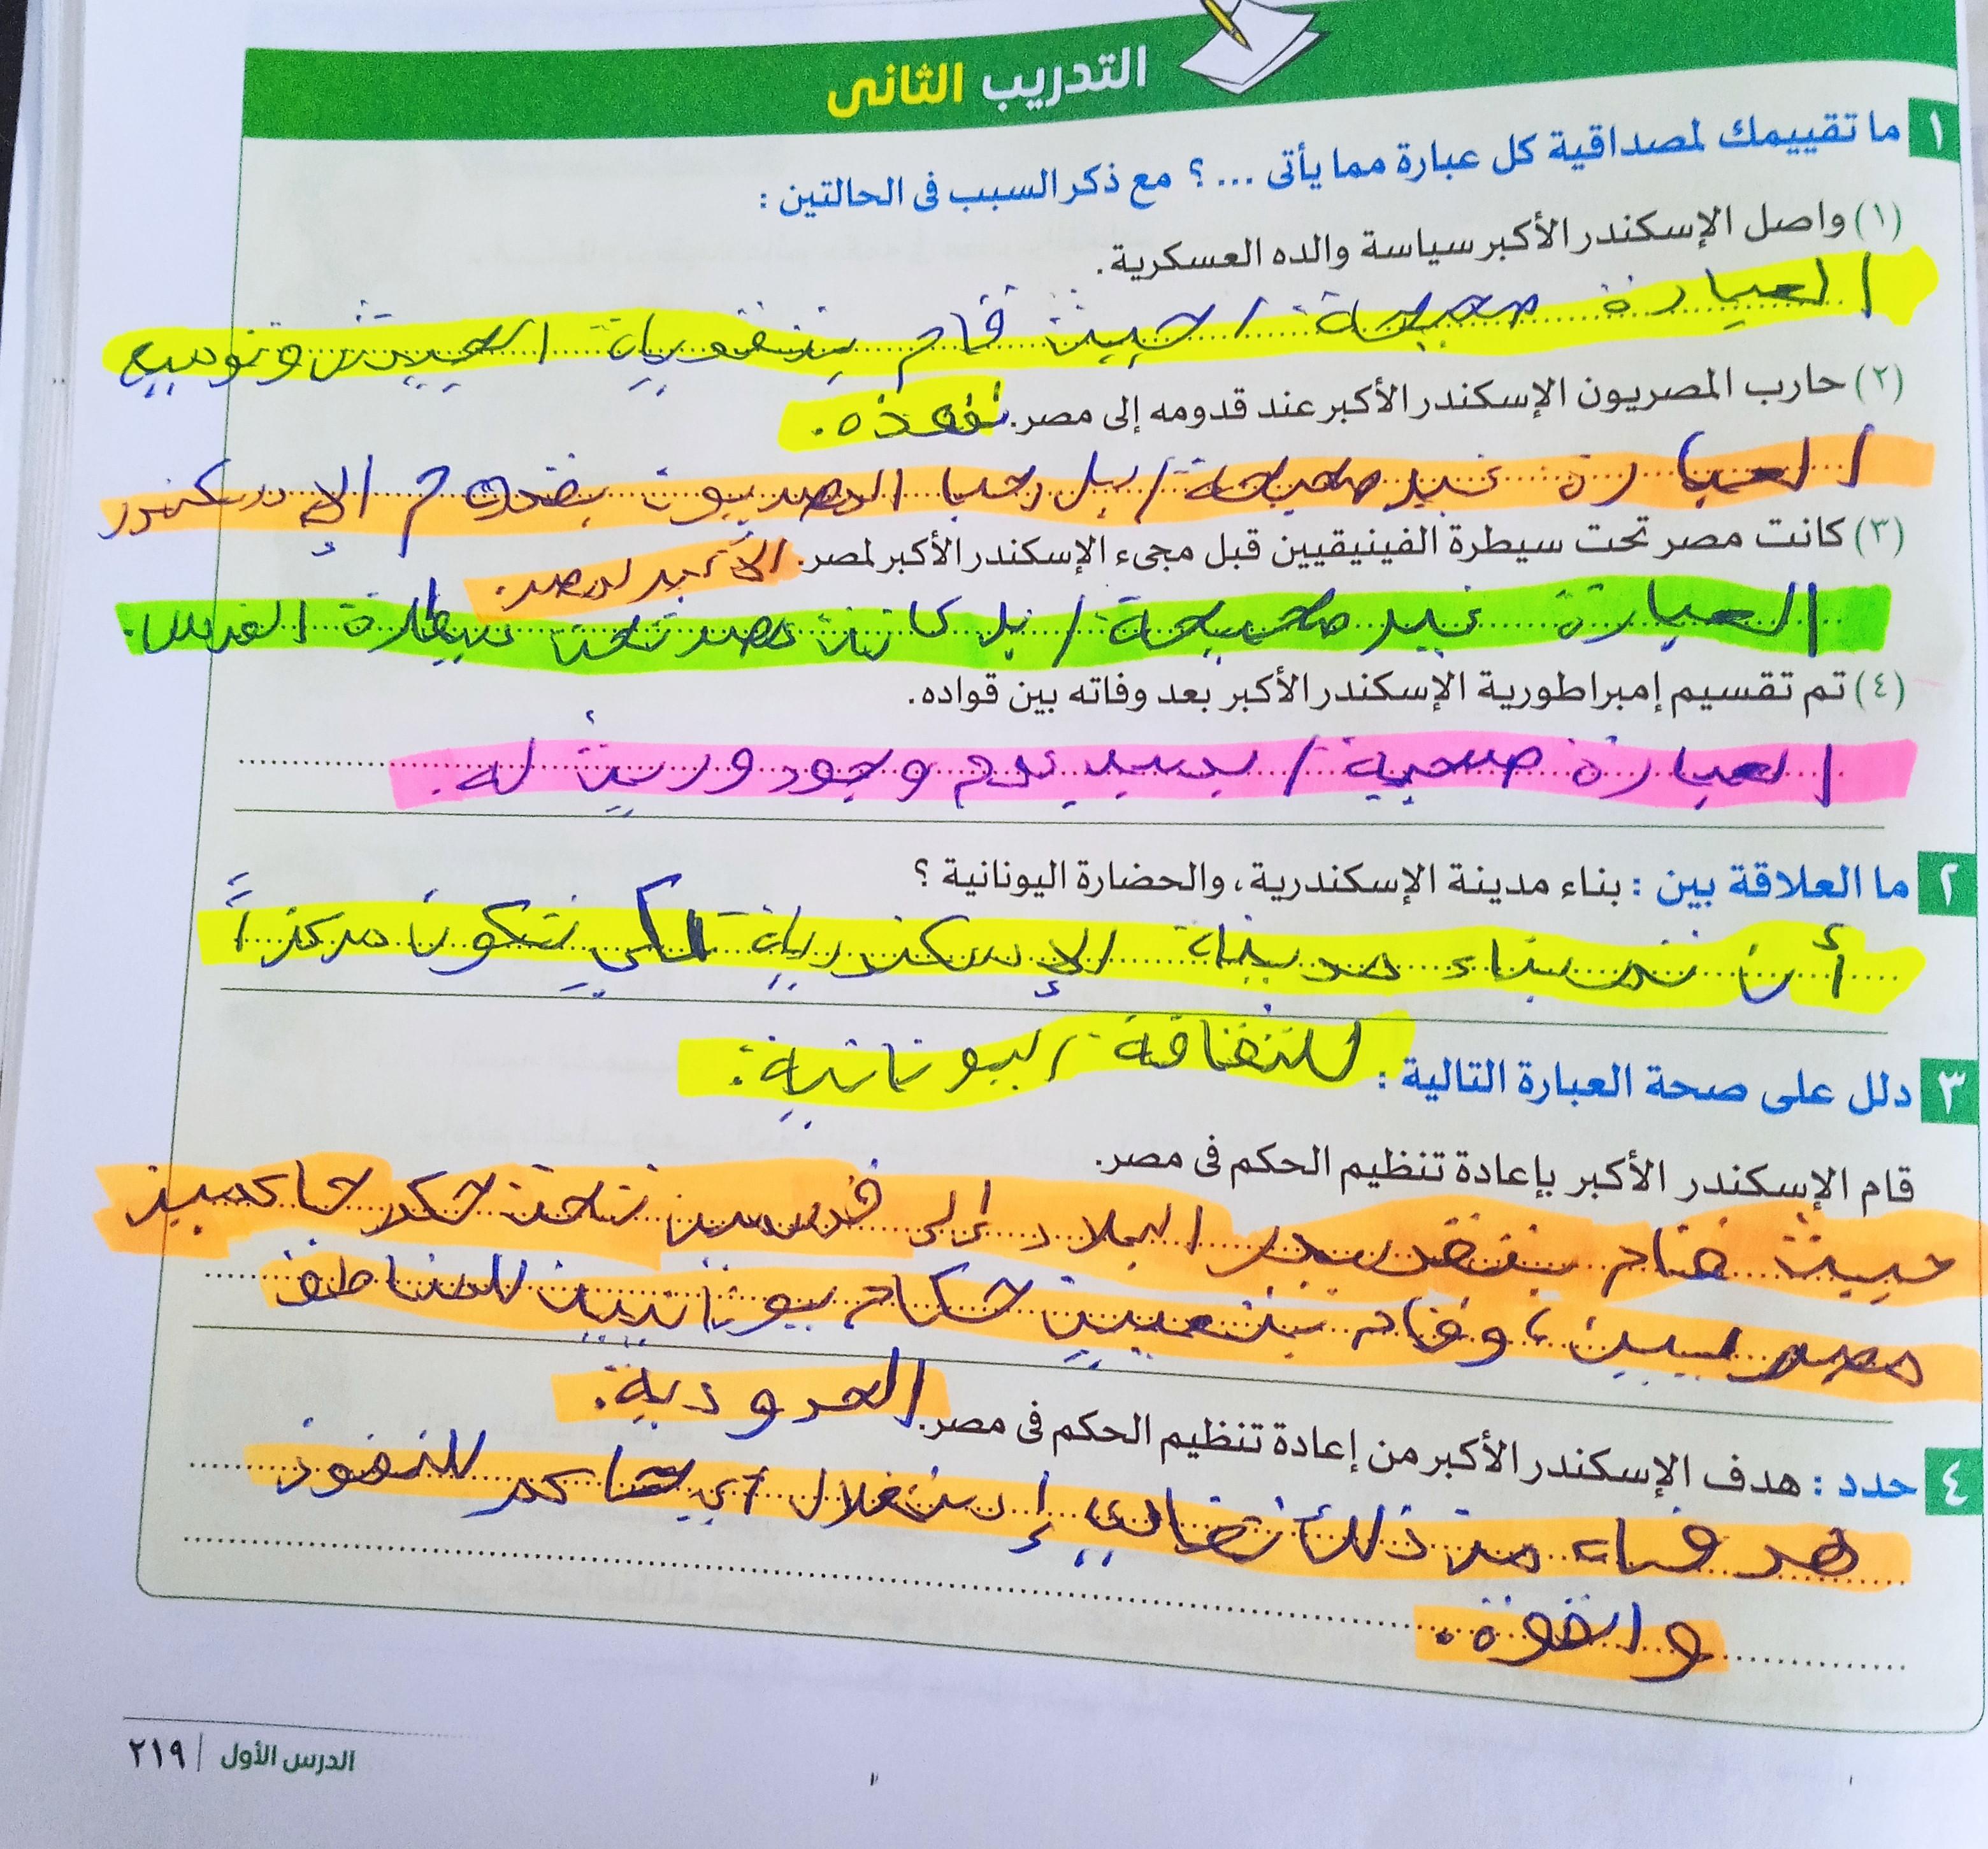 التدريب الثانى
١ ما تقييمك لمصداقية كل عبارة مما يأتى ... ؟ مع ذكر السبب فى الحالتين :
(١) واصل الإسكندر الأكبر سياسة والده العسكرية.
العبارة صحيحة / حيث قام بتقوية الجيش وتوسيع
نفوذه.
(٢) حارب المصريون الإسكندر الأكبر عند قدومه إلى مصر.
العبارة غير صحيحة / بل رحبا المصريون بقدوم الإسكندر
الأكبر لمصر.
(٣) كانت مصر تحت سيطرة الفينيقيين قبل مجىء الإسكندر الأكبر لمصر.
العبارة غير صحيحة / بل كانت مصر تحت سيطرة الفرس.
(٤) تم تقسيم إمبراطورية الإسكندر الأكبر بعد وفاته بين قواده.
العبارة صحيحة / بسبب عدم وجود وريث له.
٢ ما العلاقة بين : بناء مدينة الإسكندرية، والحضارة اليونانية ؟
أن تم بناء مدينة الإسكندرية لكي تكون مركزاً
للثقافة اليونانية.
٣ دلل على صحة العبارة التالية :
قام الإسكندر الأكبر بإعادة تنظيم الحكم فى مصر.
حيث قام بتقسيم البلاد إلى قسمين تحت حكم حاكمين
مصريين، وقام بتعيين حكام يونانيين للمناطق
الحدودية.
٤ حدد : هدف الإسكندر الأكبر من إعادة تنظيم الحكم فى مصر.
هدفه من ذلك إستغلال أي حاكم للنفوذ
والقوة.
الدرس الأول | ٢١٩